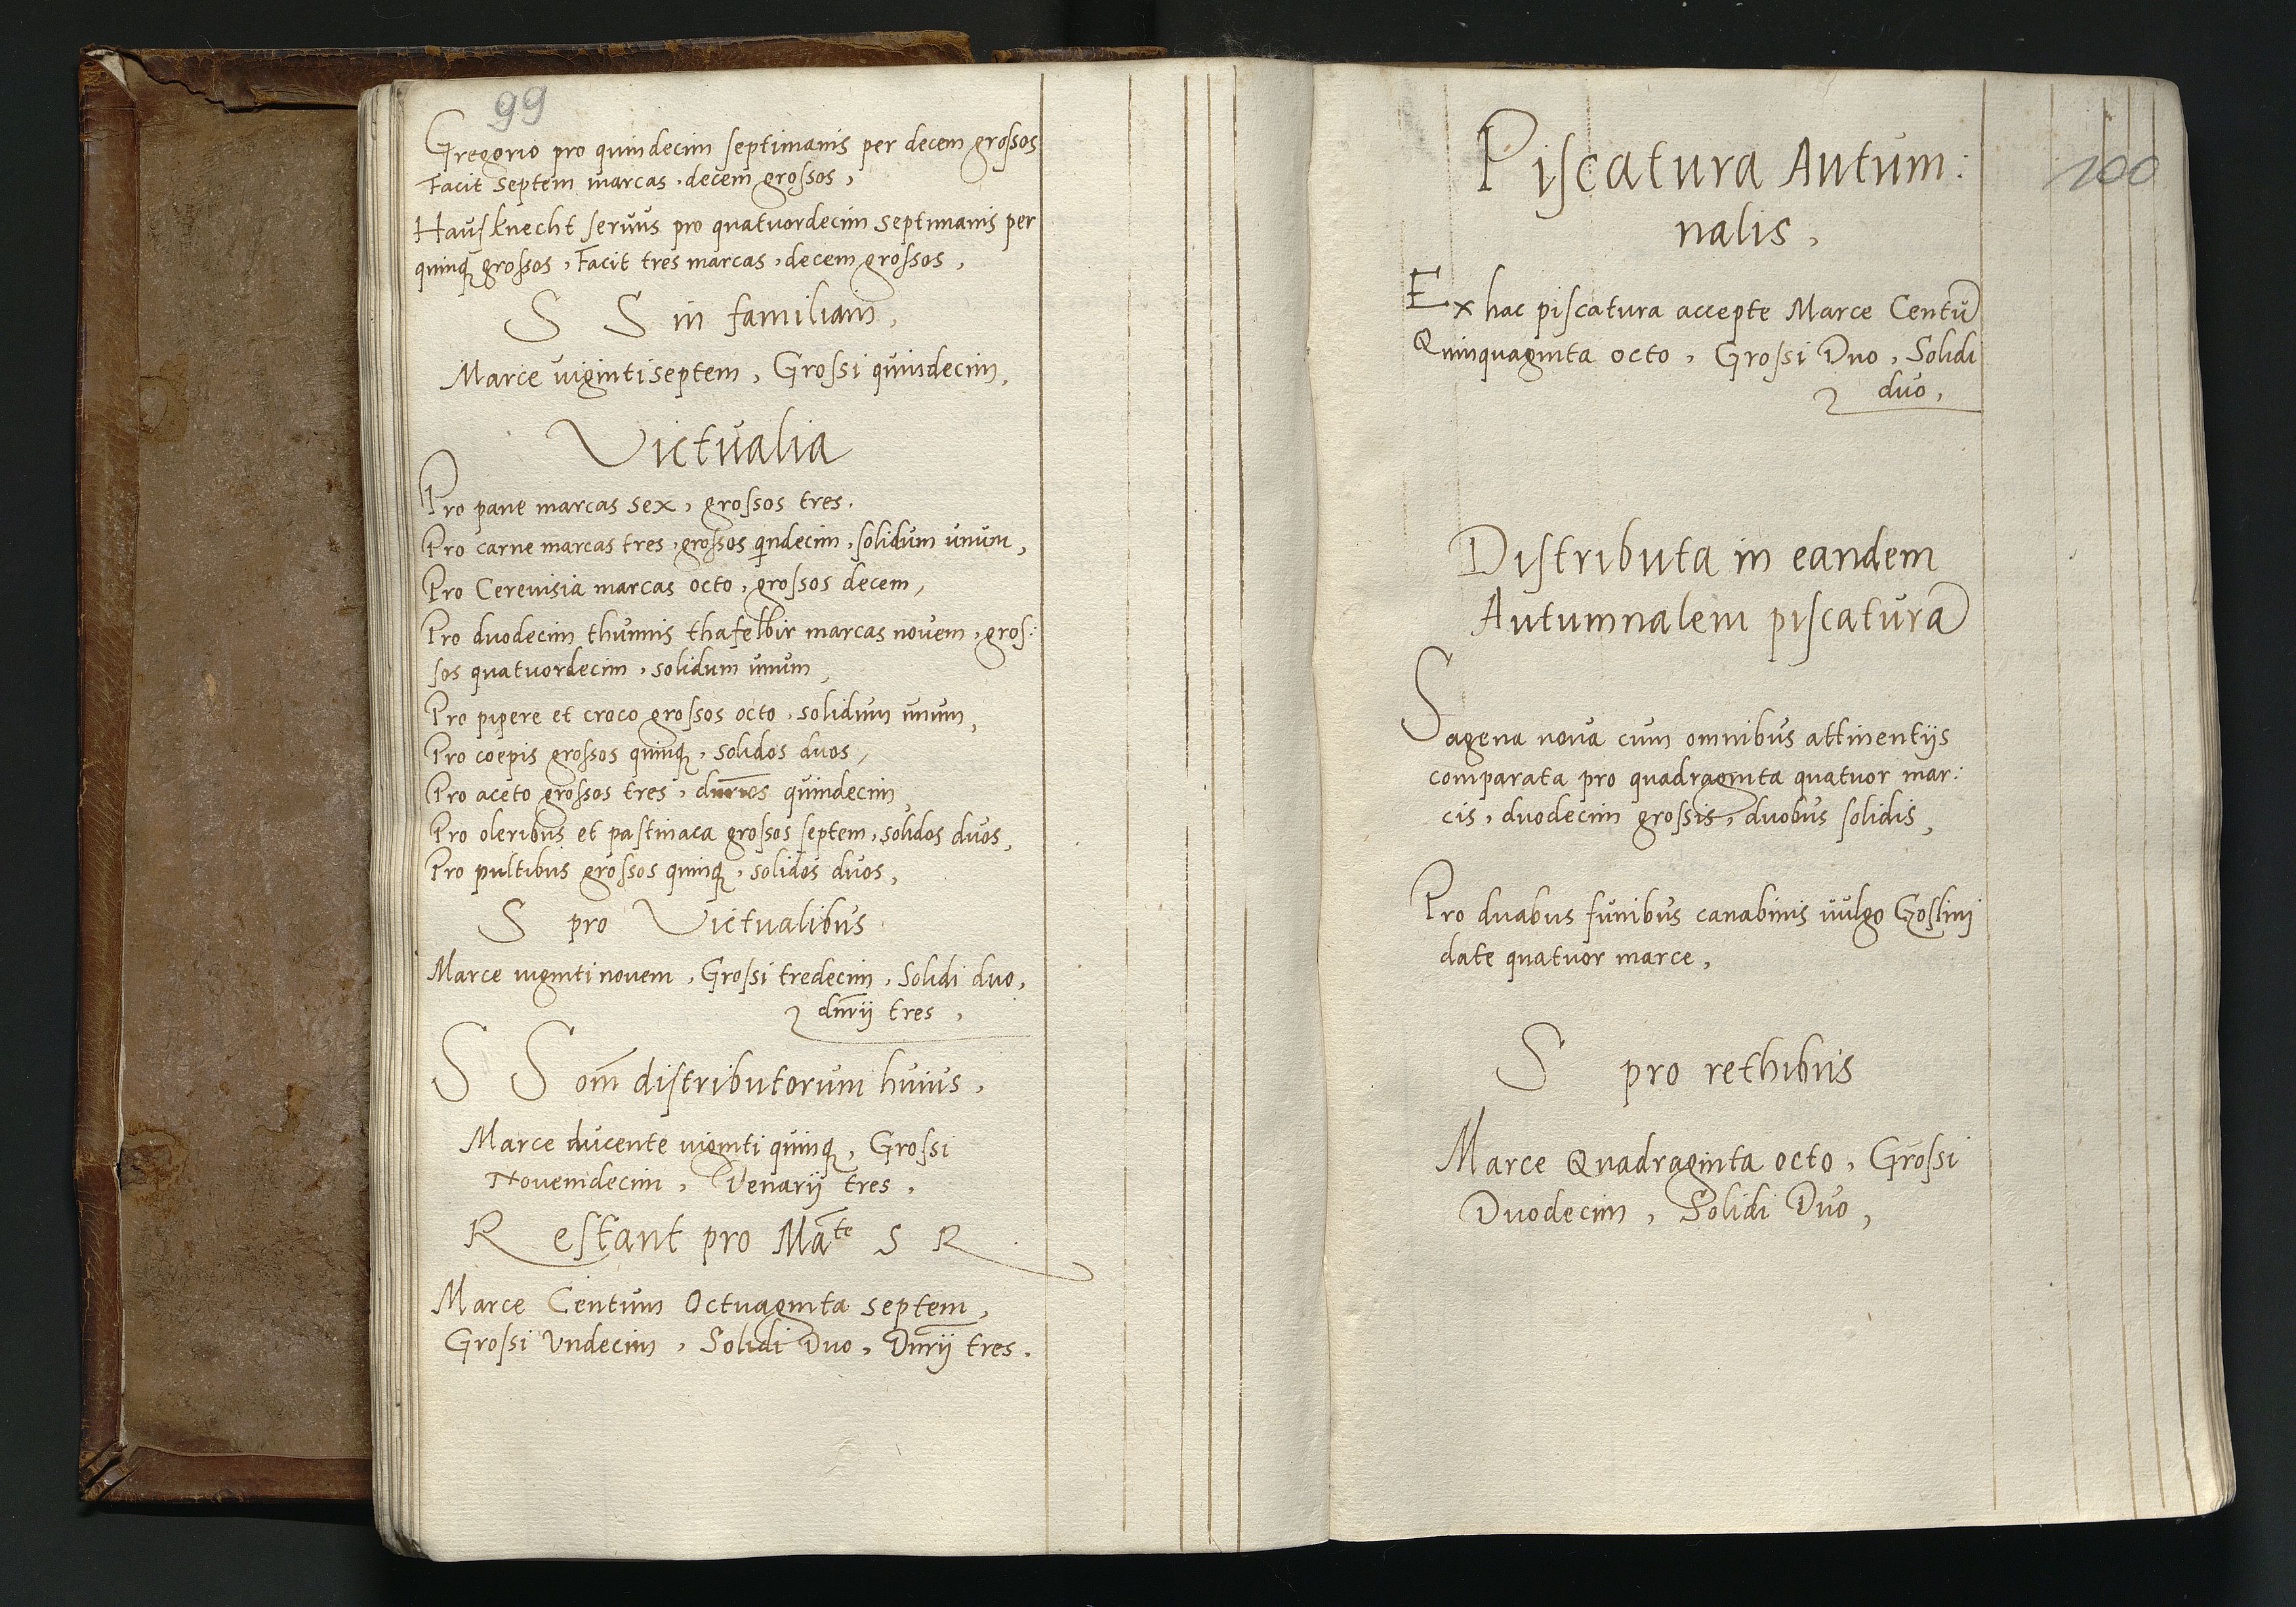 99
Gregorio pro quindecim septimanis per decem grossos
Facit septem marcas, decem grossos,
Hausknecht seruus pro quatuordecim septimanis per
quinq grossos, Facit tres marcas, decem grossos,
S S in familiam,
Marce uigintiseptem, Grossi quindecim,
Victualia
Pro pane marcas sex, grossos tres.
Pro carne marcas tres, grossos qindecim, solidum unum,
Pro Cereuisia marcas octo, grossos decem,
Pro duodecim thunnis thafelbir marcas nouem, gros:
sos quatuordecim, solidum unum,
Pro pipere et croco grossos octo, solidum unum,
Pro coepis grossos quinq, solidos duos,
Pro aceto grossos tres, dnrios quindecim,
Pro oleribus et pastinaca grossos septem, solidos duos,
Pro pultibus grossos quinq, solidos duos,
S pro Victualibus
Marce uiginti nouem, Grossi tredecim, Solidi duo,
dnrij tres,
S S om̄ distributorum huius,
Marce ducente uiginti quinq, Grossi
Nouendecim, Denarij tres,
Restant pro Ma^te S R
Marce Centum Octuaginta septem,
Grossi Vndecim, Solidi Duo, Dnrij tres.
100
Piscatura Autum:
nalis,
Ex hac piscatura accepte Marce Centū
Quinquaginta octo, Grossi Duo, Solidi
duo,
Distributa in eandem
Autumnalem piscaturā
Sagena noua cum omnibus attinentijs
comparata pro quadraginta quatuor mar:
cis, duodecim grossis, duobus solidis,
Pro duabus funibus canabinis uulgo Goslinij
date quatuor marce,
S pro rethibus
Marce Quadraginta octo, Grossi
Duodecim, Solidi Duo,